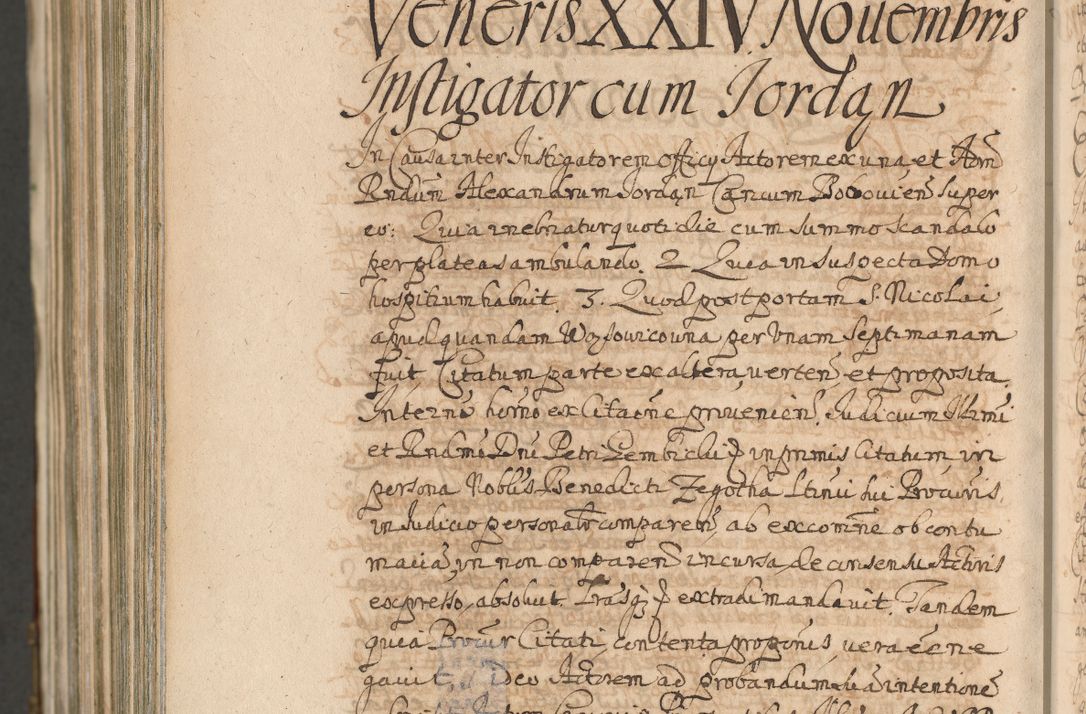 Veneris XXIV Nouembris
Instigator cum Jordąn
In Causa inter Instigatorem Officij Actorem ex una, et Adm
Rndum Alexandrum Jordąn Canum Bobouien super
eo: Quia inebriatur quotidie cum summo scandalo
per plateas ambulando. 2 Quia in suspecta Domo
hospitium habuit. 3. Quod post portam S. Nicolai
apud quandam Wąsowicowna per Vnam septimanam
fuit, Citatum parte ex altera, verten, et proposita.
In termo horno ex Citaone prouenien. Judicium Illrmi
et Rndmi Dni Petri Gembicki in primis Citatum in
persona Noblis Benedicti Zegotha Ltimi sui Procuris,
in Judicio personalr comparen, ab excomne ob contu
macia, in non comparen incursa, de consensu Actoris
expresso, absoluit. Lrasq3 extradi mandauit. Tandem
quia Procur Citati, contenta proponis, vera eene
gauit, Deo Actorem ad probandum sua intentione